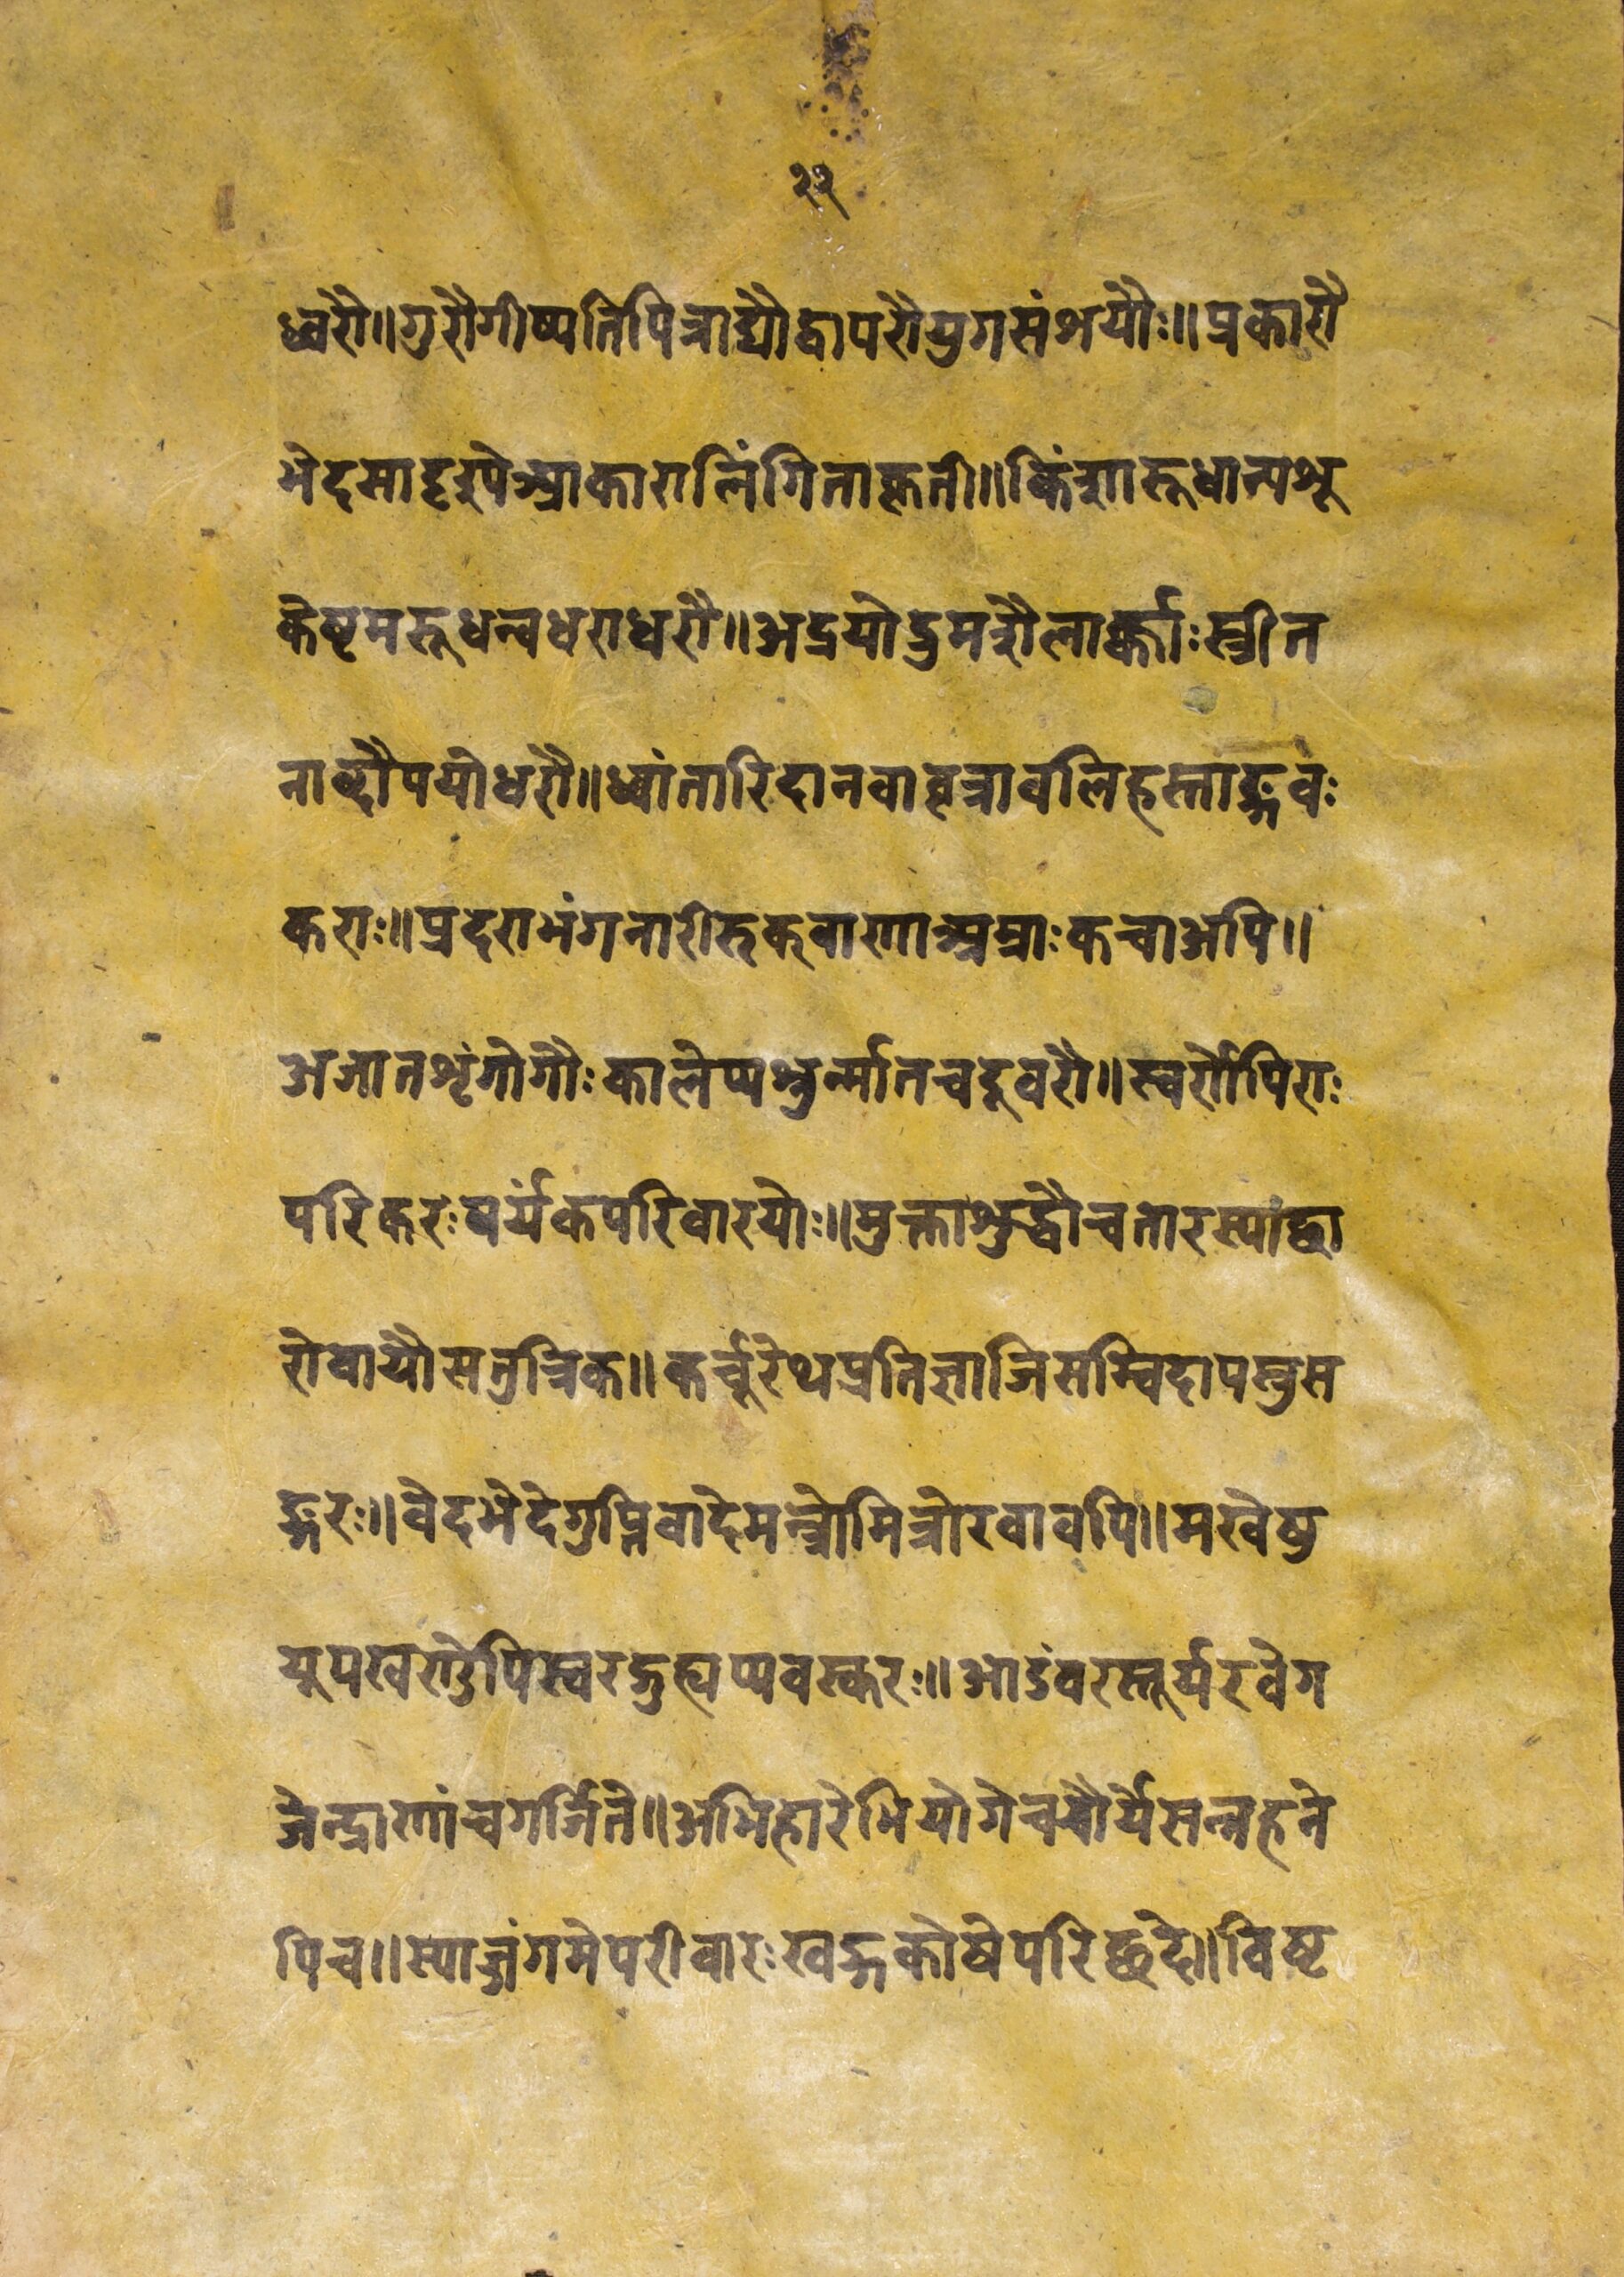 २२
ध्वरौ॥गुरौगीष्पतिपित्राद्यौद्वापरौयुगसंशयौः॥प्रकारौ
भेदसादृश्येआकारालिंगिताकृती॥किंशारूधान्यशू
केषूमरूधन्वधराधरौ॥अद्रयोद्रुमशैलार्क्काःस्त्रीत
नाब्दौपयोधरौ॥ध्वांतारिदानवावृत्रावलिहस्ताङ्शवः
कराः॥प्रदराभंगनारीरुकवाणाअस्राःकचाअपि॥
अजातशृंगोगौःकालेप्यश्रुर्न्मातचदूवरौ॥स्वर्णेपिराः
परिकरःपर्यंकपरिवारयोः॥मुक्ताशुद्धौचतारस्यांछा
रोवायौसतुत्रिक॥कर्च्चूरेथप्रतिज्ञाजिसम्विदापस्तुस
ङ्गरः॥वेदभेदेगुप्तिवादेमन्त्रोमित्रोरवावपि॥मखेषु
यूपखण्डेपिस्वरङ्गुह्यप्यवस्करः॥आडंवरस्तूर्यरवेग
जेन्द्राणांचगर्जिते॥अभिहारेभियोगेचचौर्येसन्नहने
पिच॥स्याज्जंगमेपरीवारःखड्गकोषेपरिछदे॥विष्ट